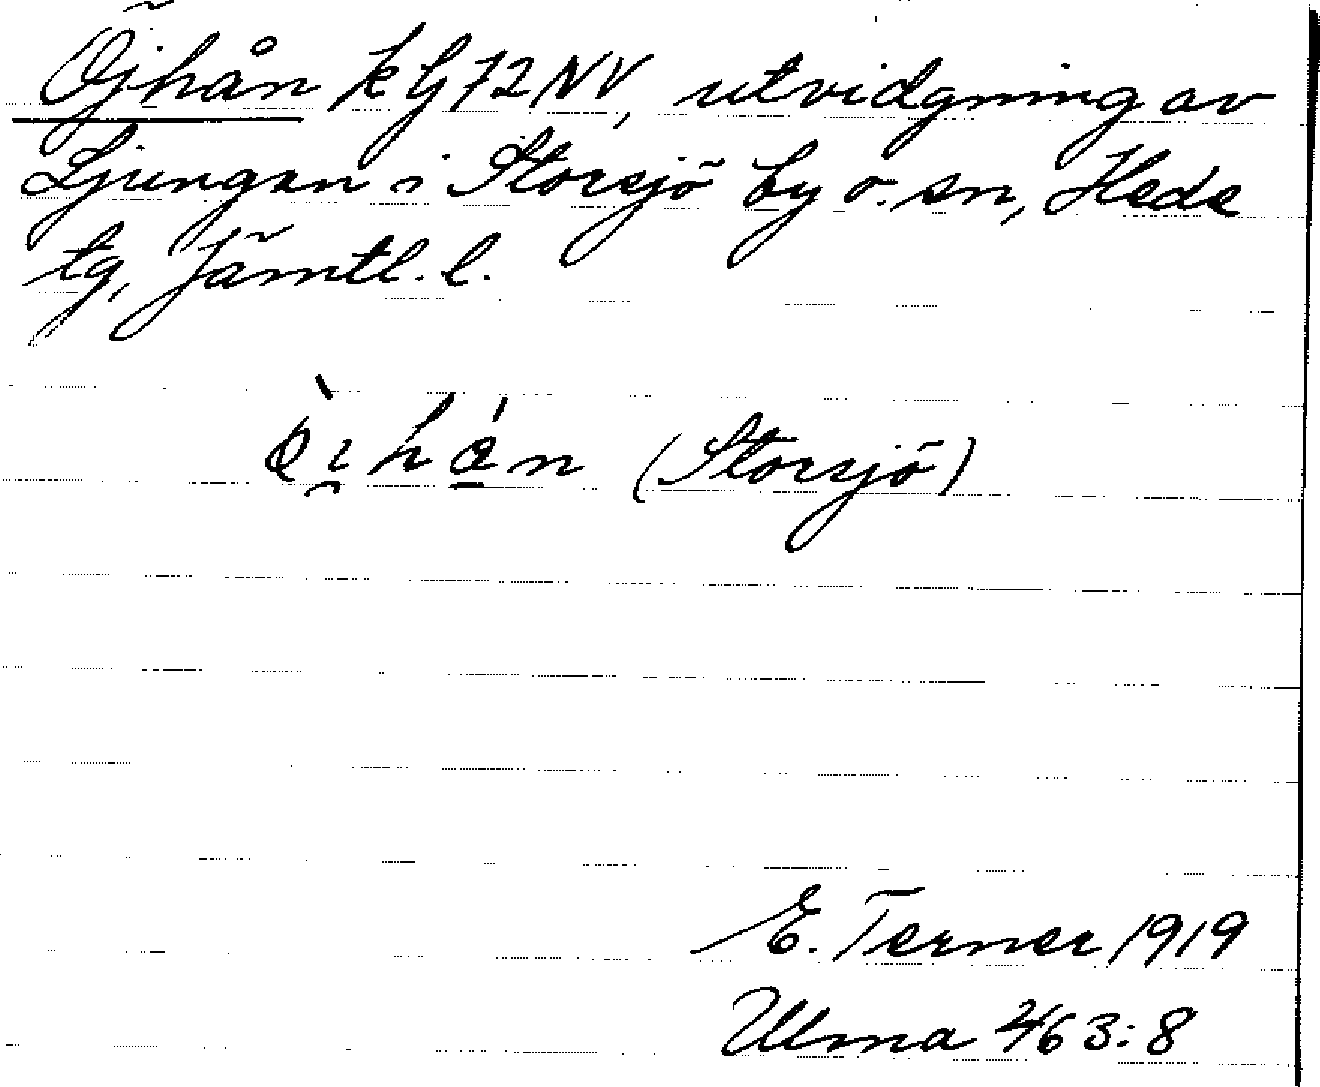 Öjhån kG72NV, utvidgning av
Ljungan i Storsjö by o. sn, Hede
tg, Jämtl. l.
(Storsjö)
E. Terner 1919
Ulma 463:8